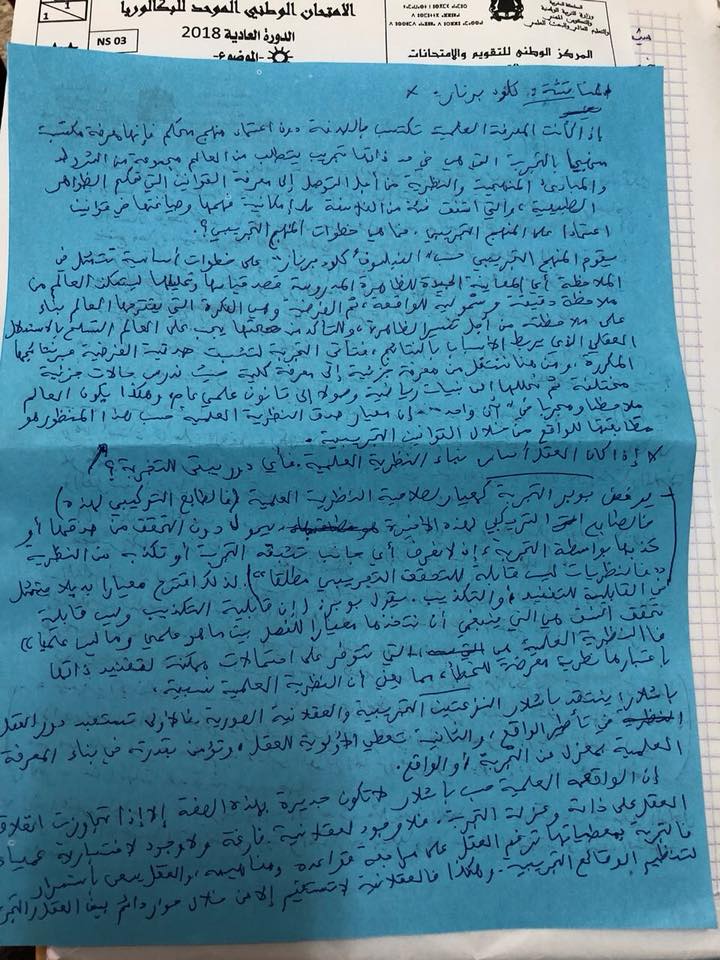 الامتحان الوطني الموحد للبكالوريا
الدورة العادية 2018
-الموضوع-
NS 03
1
1
المركز الوطني للتقويم والامتحانات
المناقشة: كلود برنار
إذا كانت المعرفة العلمية تكتسب دون اعتماد منهج محكم فإنها معرفة مكتسبة
بالتجربة التي هي في حد ذاتها تجريب يتطلب من العالم مجموعة من الشروط
والمبادئ المنهجية والنظرية من أجل التوصل إلى معرفة القوانين التي تحكم الظواهر
الطبيعية، والتي من الفلاسفة على إمكانية فهمها وصياغتها في قوانين
اعتمادا على المنهج التجريبي. فما هي خطوات المنهج التجريبي؟
يقوم المنهج التجريبي حسب الفيلسوف "كلود برنار" على خطوات أساسية تتمثل في
الملاحظة أي المعاينة الجيدة للظاهرة المدروسة قصد قياسها وتحليلها ليتمكن العالم من
ملاحظة دقيقة وشمولية للواقعة، ثم الفرضية وهي الفكرة التي يقترحها العالم بناء
على ملاحظته من أجل تفسير الظاهرة، وللتأكد من صحتها يجب على العالم التسلح بالاستدلال
العقلي الذي يربط الأسباب بالنتائج، فتأتي التجربة لتثبت صدقية الفرضية
المكررة، ومن هنا ننتقل من معرفة جزئية إلى معرفة كلية حيث ندرس حالات جزئية
مختلفة ثم نحللها إلى بنيات رياضية وصولا إلى قانون علمي عام، وهكذا يكون العالم
ملاحظا ومجربا في آن واحد. إن معيار صدق النظرية العلمية حسب هذا المنظور هو
مطابقتها للواقع من خلال القوانين التجريبية.
إذا كان العقل أساس بناء النظرية العلمية. فأي دور يبقى للتجربة؟
- يرفض بوبر التجربة كمعيار لصلاحية النظرية العلمية (فالطابع التركيبي لهذه)
فالطابع التركيبي لهذه الأخيرة يحول دون التحقق من صدقها أو
كذبها بواسطة التجربة، إذ لا نعرف أي جانب تثبته التجربة أو تكذبه من النظرية
"فالنظريات ليست قابلة للتحقق التجريبي مطلقا") لذلك اقترح معيارا بديلا يتمثل
في القابلية للتفنيد أو التكذيب. يقول بوبر: (إن قابلية التكذيب وليس قابلية
تحقق النسق هي التي ينبغي أن نتخذها معيارا للفصل بين ما هو علمي وما ليس علميا»
فالنظرية العلمية هي التي تتوفر على احتمالات ممكنة لتفنيد ذاتها
باعتبارها نظرية معرضة للخطأ، مما يعني أن النظرية العلمية نسبية.
باشلار: ينتقد باشلار النزعتين التجريبية والعقلانية الصورية فالأولى تستبعد دور العقل
في تأطير الواقع، والثانية تعطي الأولوية للعقل، وتؤمن بقدرته في بناء المعرفة
العلمية بمعزل عن التجربة أو الواقع.
إن الواقعة العلمية حسب باشلار لا تكون جديرة بهذه الصفة إلا إذا تجاوزت انغلاق
العقل على ذاته وعزلة التجربة. فلا وجود لعقلانية فارغة ولا وجود لاختبارية عمياء
فالتجربة بمعطياتها ترغم العقل على مراجعة قواعده ومفاهيمه، والعقل يسعى باستمرار
لتنظيم الوقائع التجريبية. وهكذا فالعقلانية لا تستقيم إلا من خلال حوار دائم بين العقل والتجر